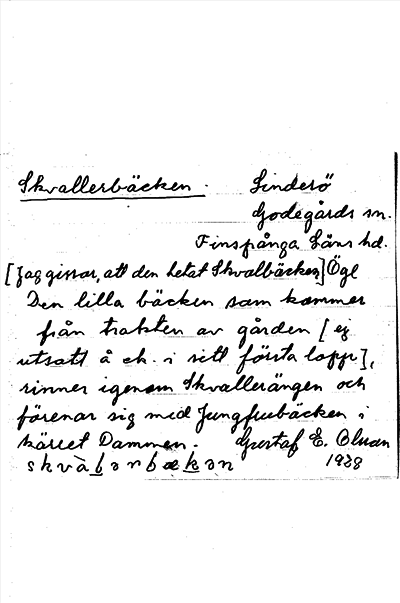 Skvallerbäcken.
Linderö
Godegårds sn.
Finspånga Läns hd.
[Jag gissar, att den hetat Skvalbäcken] Ögl
Den lilla bäcken som kommer
från trakten av gården [ej
utsatt å ek. i sitt första lopp],
rinner igenom Skvallerängen och
förenar sig med Jungfrubäcken i
kärret Dammen. Gustaf E. Olsson
1928